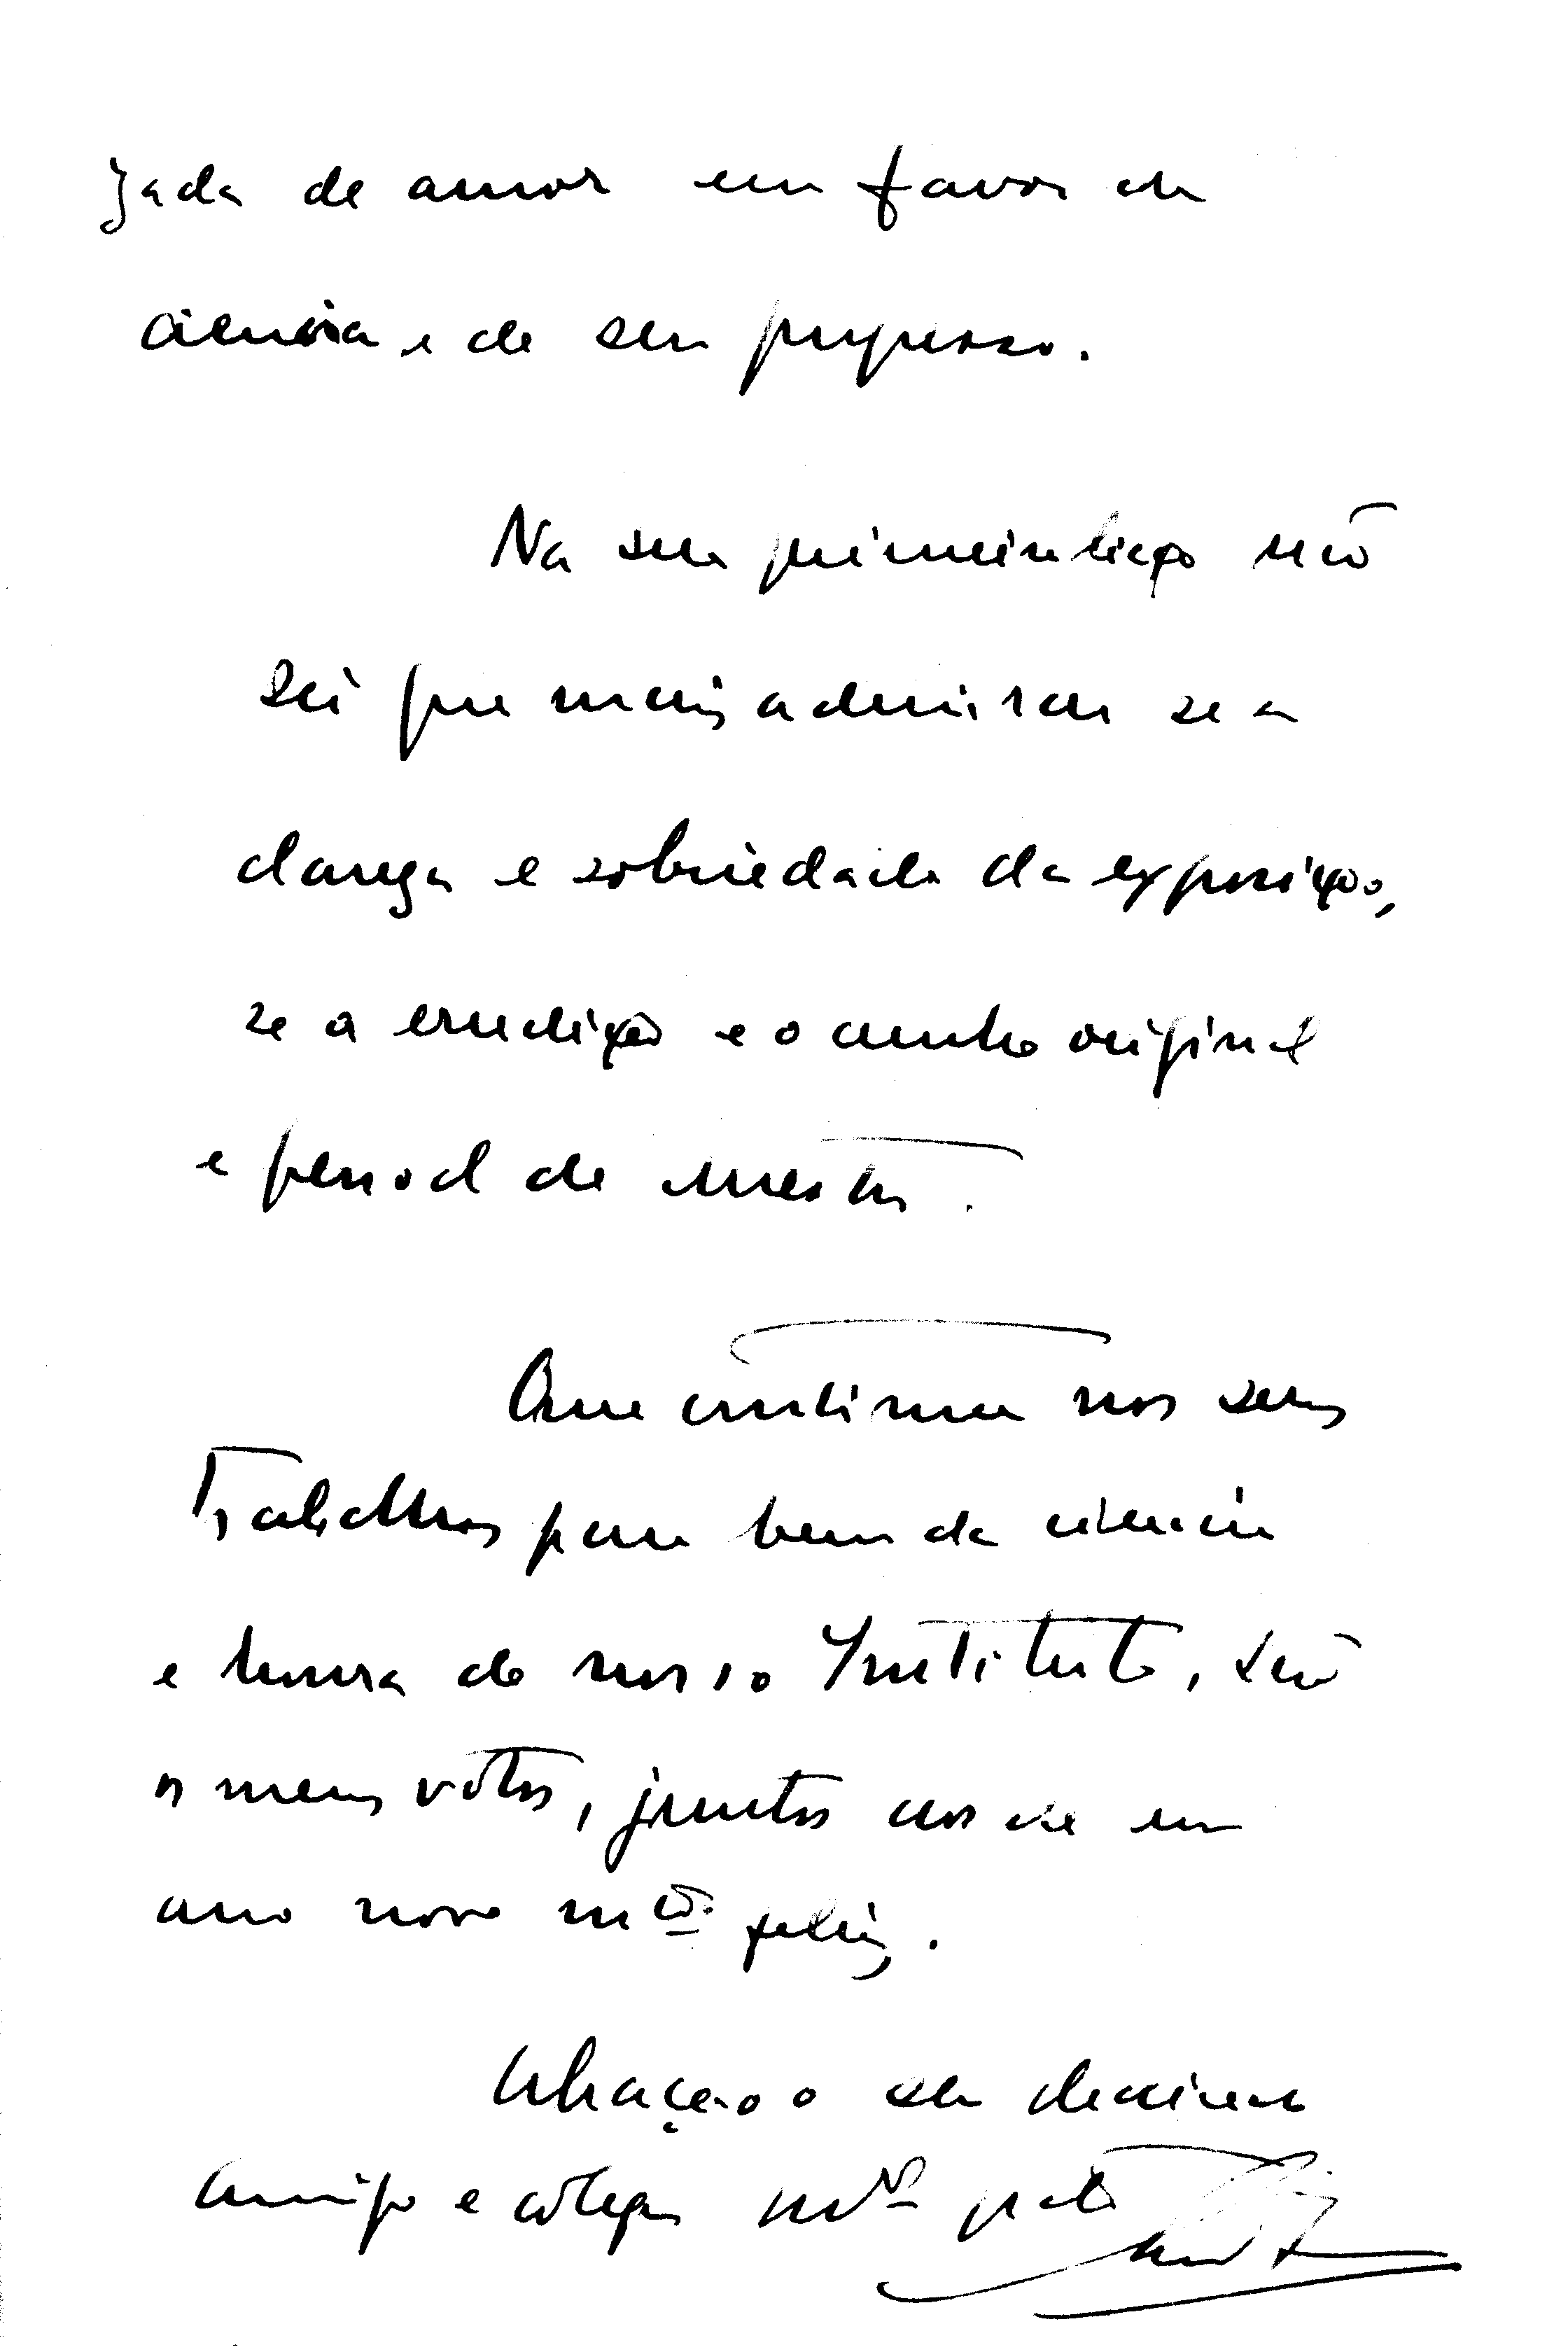 zada de amor em favor da
ciencia e de seu progresso.
Na sua primeira lição não
sei que mais admirar se a
clareza e sobriedade da exposição,
se a erudição e o cunho original
e pessoal de mestre.
Que continue nos seus
Trabalhos para bem da ciencia
e honra do nosso Instituto, são
os meus vótos, juntos aos de um
ano novo mto. feliz.
Abraça-o o seu
amigo e colega mto grato